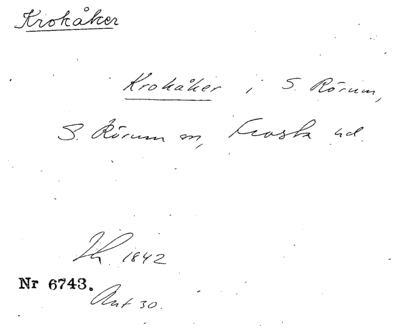 Krokåker
Krokåker i S. Rörum,
S. Rörum sn, Frosta hd.
Lh. 1842
Nr 6743.
Ant 30.